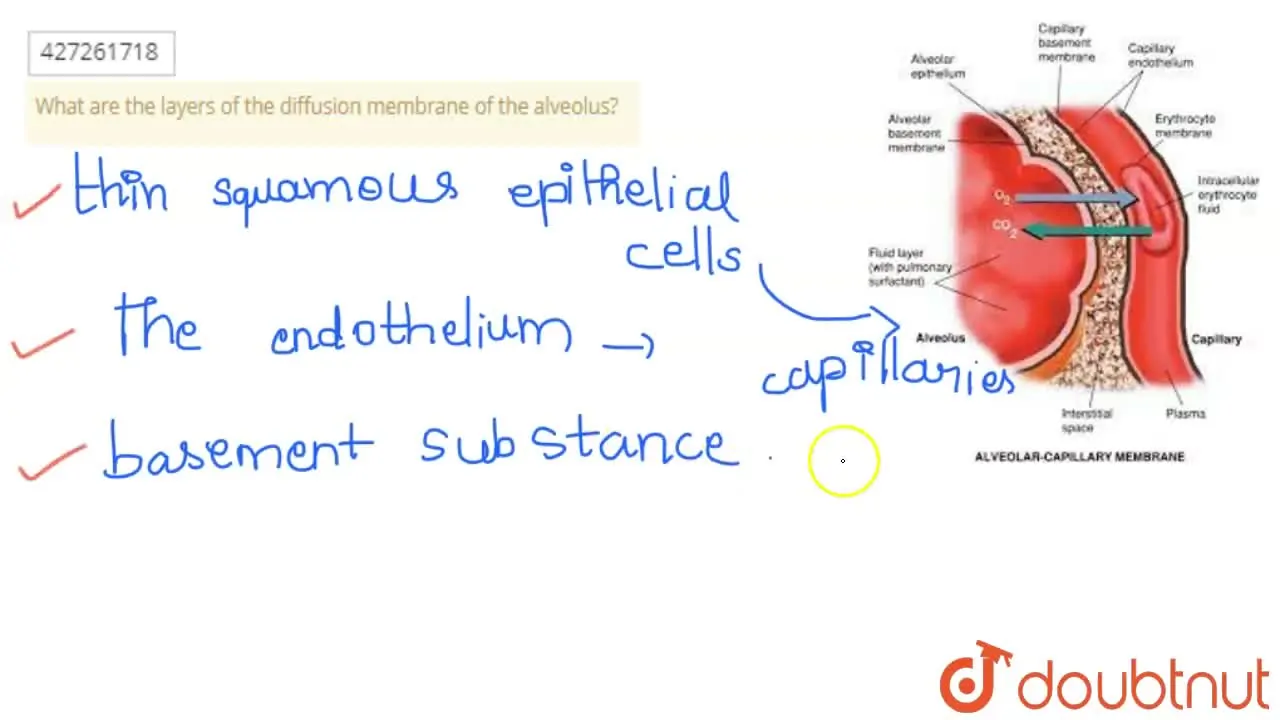 427261718
What are the layers of the diffusion membrane of the alveolus?
thin squamous epithelial
cells
The endothelium →
capillaries
basement substance
Capillary
basement
membrane
Capillary
endothelium
Alveolar
epithelium
Alveolar
basement
membrane
Erythrocyte
membrane
Intracellular
erythrocyte
fluid
O2
CO2
Fluid layer
(with pulmonary
surfactant)
Alveolus
Capillary
Interstitial
space
Plasma
ALVEOLAR-CAPILLARY MEMBRANE
doubtnut